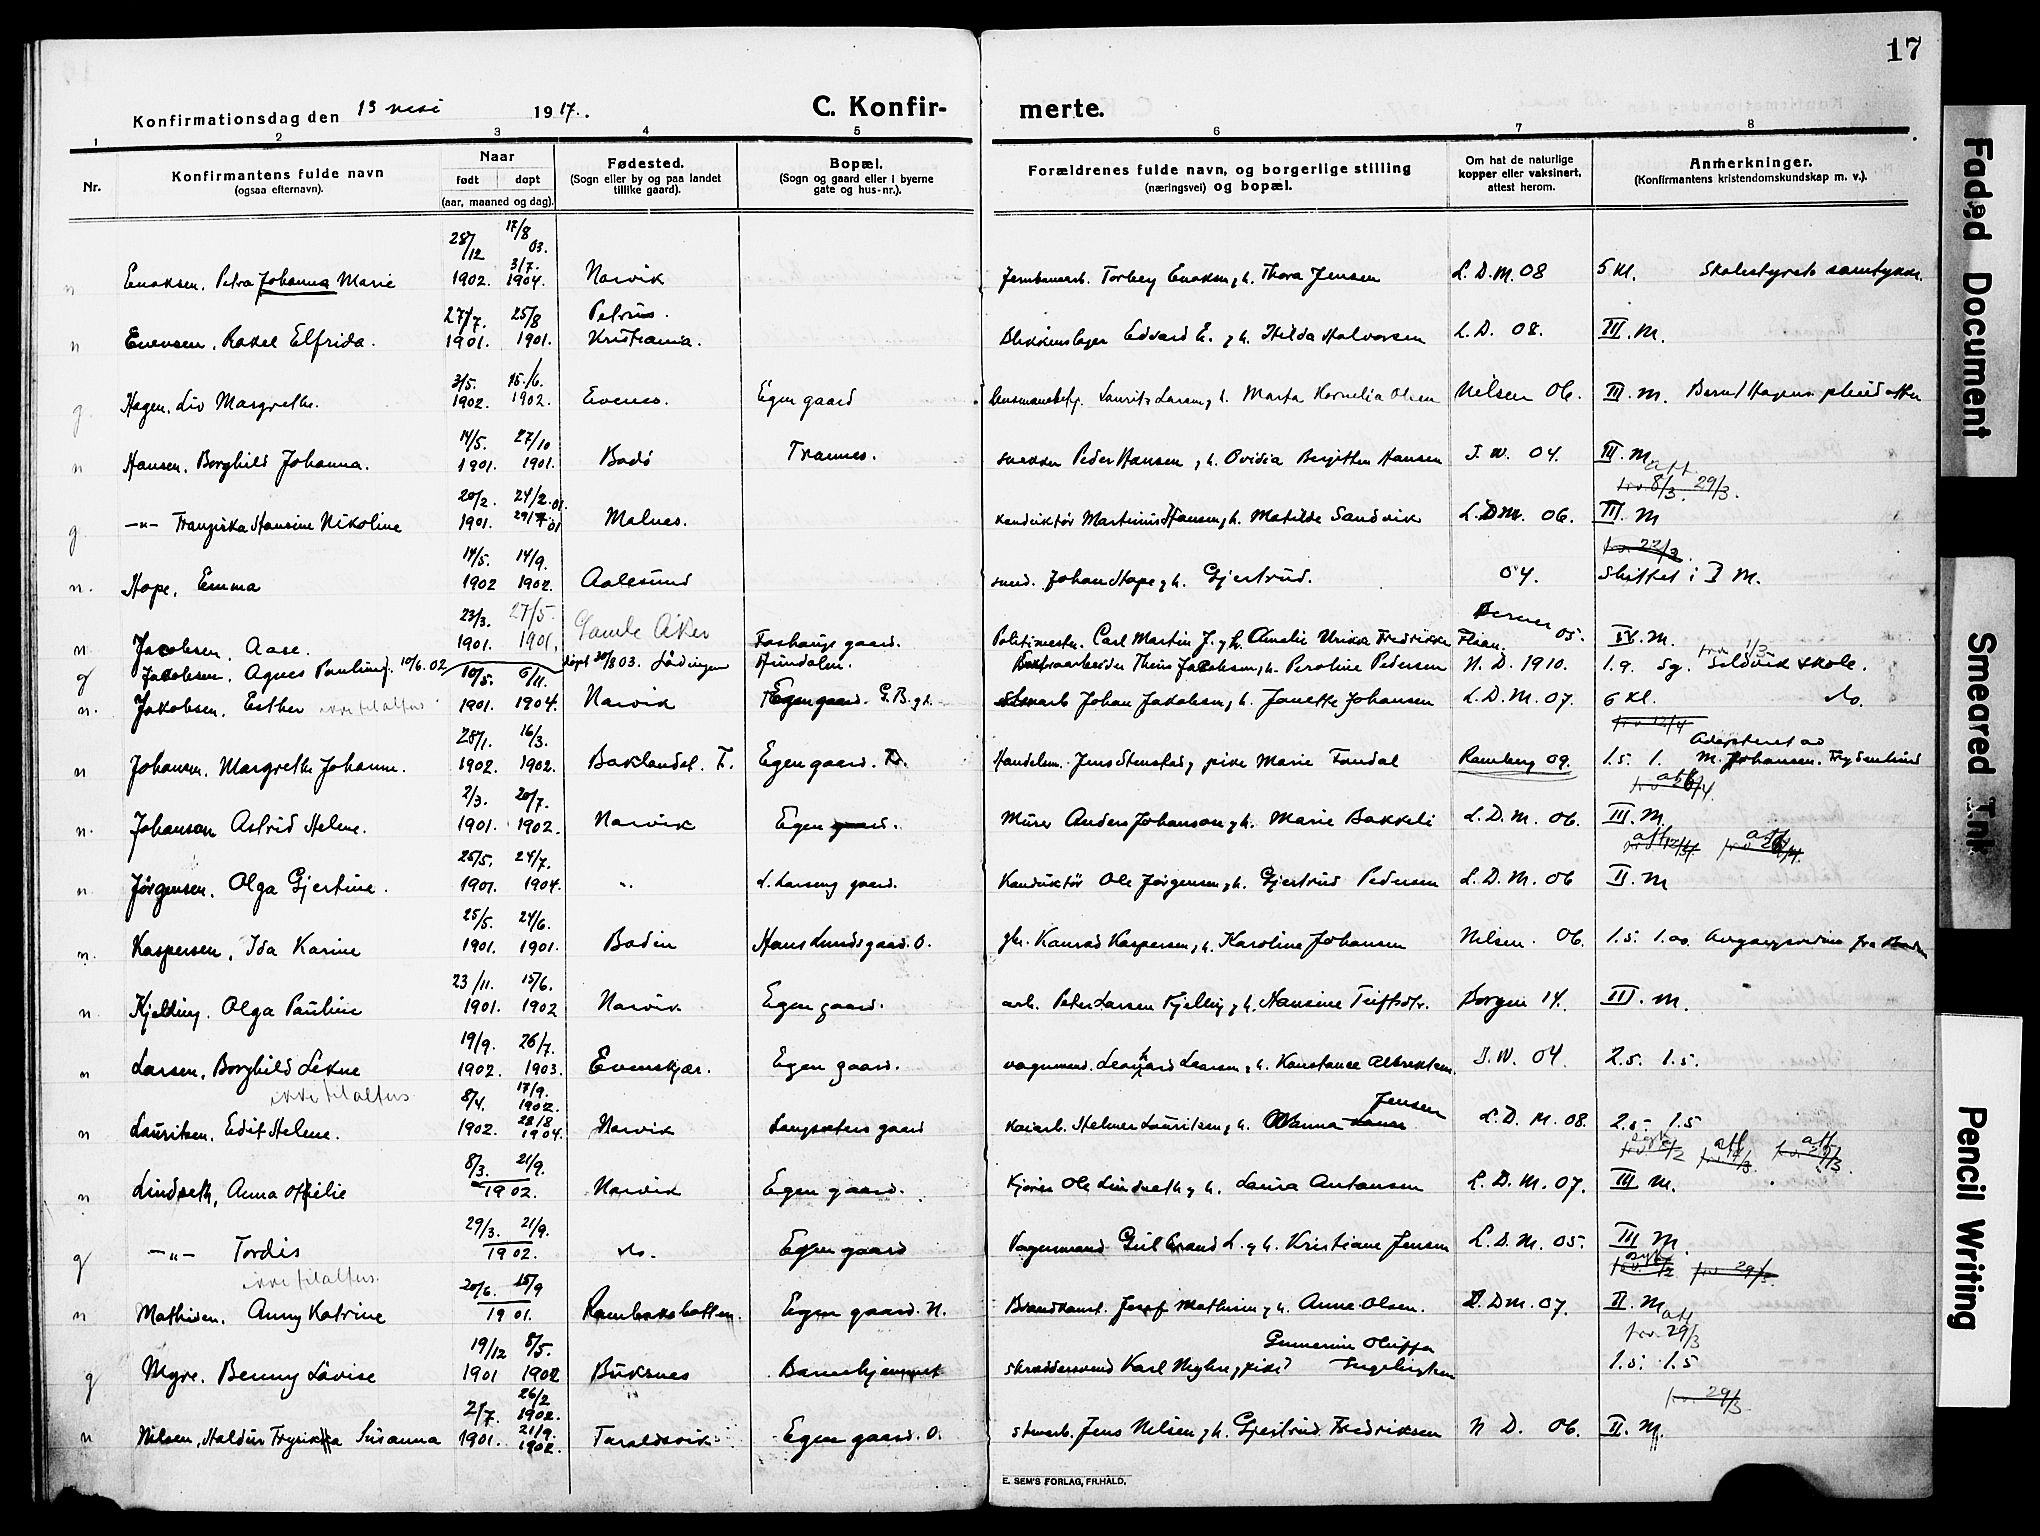 17
Konfirmationsdag den 13 mai 1917.
C. Konfirmerte.
1 2 3 4 5 6 7 8
Nr.
Konfirmantens fulde navn
(ogsaa efternavn).
Naar
født dopt
(aar, maaned og dag).
Fødested.
(Sogn eller by og paa landet
tillike gaard).
Bopæl.
(Sogn og gaard eller i byerne
gate og hus-nr.).
Forældrenes fulde navn, og borgerlige stilling
(næringsvei) og bopæl.
Om hat de naturlige
kopper eller vaksinert,
attest herom.
Anmerkninger.
(Konfirmantens kristendomskundskap m. v.).
28/12 17/8 03. 3/7.
n Enoksen, Petra Johanna Marie 1902. 1904. Narvik Torberg Enoksen, h. Thora Jensen L. D. M. 08 5 kl. Skolestyrets samtykke.
27/7. 25/8 Petrus.
n Evensen, Rakel Elfrida. 1901. 1901. Kristiania. Blikkenslager Edvard E. h. Hilda Halvorsen L. D. 08. III. M.
3/5. 15./6.
g. Hagen, Liv Margrethe. 1902. 1902. Evenes. Egen gaard Laurits Larsen, h. Marta Kornelia Olsen Nilsen 06. III. M. Bernt Hagens pleiedatter
14/5. 27/10
n Hansen, Borghild Johanna. 1901. 1901. Bodö Tranes. snekker Peder Hansen, h. Ovidia Bergitten Hansen J. W. 04. III. M.
att. 8/3. 29/3.
20/2. 24/2.01.
g. —"— Franziska Hansine Nikoline 1901. 29/7 01 Malnes. konduktör Martinus Hansen, h. Matilde Sandvik L. D. M. 06. III. M
22/3.
14/5. 14/9.
n. Hope, Emma 1902 1902. Aalesund smed. Johan Hope, h. Gjertrud. 04. Skiftet i I M.
23/3. 27/5. Gamle Aker
n. Jacobsen, Aase. 1901. 1901. gaard. Politimestr. Carl Martin J. h. Amalie Ulrikke Fredrikke 05. IV. M.
g Jakobsen, Agnes Pauline. 10/6.02 10/5. 6/11. döpt 30/8 03. Lödingen Theis Jacobsen, h. Peroline Pedersen N. D. 1910. 1.9. Sg. skole. 1/3
n. Jakobsen, Esther ikke tilalters 1901. 1904. Narvik Egen gaard. Johan Jakobsen, h. Janette Johansen L. D. M. 07. 6 kl. do.
12/4
28/1. 16/3. Adopteret av
n Johansen, Margrethe Johanne. 1902. 1902. Baklandet. T. Egen gaard. Handelsm. Jens Stenstad, pike Marie Fondal Ramberg 09. 1.5. 1. M. Johansen. Frydenlund
2/3. 20/7.
n. Johanson Astrid Helene. 1901. 1902. Narvik Egen gaard. Murer Anders Johanson, h. Marie Bakkeli L. D. M. 06. III. M.
25/5. 24/7.
n. Jörgensen, Olga Gjertine. 1901. 1904. ". L. Larsens gaard. Konduktör Ole Jörgensen, h. Gjertrud Pedersen L. D. M. 06 II. M
25/5. 24/6.
n. Kaspersen, Ida Karine 1901. 1901. Bodin Hans Lunds gaard. O. Konrad Kaspersen, h. Karoline Johansen Nilsen. 06. 1.5.
23/11. 15/6.
n. Kjelding, Olga Pauline 1901. 1902 Narvik Egen gaard. arb. Peder Larsen Kjelling, h. Hansine Borgen 14. III. M.
19/9. 26/7.
n Larsen, Borghild Lekne 1902. 1903. Evenskjær. Egen gaard. vognmand. Leonhard Larsen, h. Konstance Albrektsen. J. W. 04. 2.5. 1.5.
ikke tilalters 8/4. 17/9. 1902. 28/8 Jensen
n Lauritsen, Edit Helene. 1902. 1904. Narvik Langsæters gaard kaiarb. Helmer Lauritsen, h. L. D. M. 08. 2.5 1.5
8/3. 21/9.
n Lindseth, Anna Otilie 1902. Narvik Egen gaard. Kjörer Ole Lindseth, h. Laura Antonsen L. D. M. 07. III M.
29/3. 21/9.
g —"— Tordis 1902. do. Egen gaard Vognmand Gulbrand L. h. Kristiane Jensen L. D. M. 05. III M.
ikke tilalters.
20/6. 15/9
n Mathisen, Anny Katrine 1901. Rombaksbotten. Egen gaard. N. Brandkonst. Josef Mathisen, h. Anne Olsen. L. D. M. 07. II. M
att 29/3
19/12 8/5. Gunnerine Oluffa
g Myre, Benny Lovise 1901 1902 Buksnes Barnehjemmet skræddersvend Karl Myhre, pike Ingebrigtsen 1.5. 1.5
29/3
2/7. 26/2 1902. 21/9.
n Nilsen, Haldis Susanna 1901. 1902. Taraldsvik Egen gaard. O. Jens Nilsen, h. Gjertrud Fredriksen N D. 06. II. M.
E. SEM'S FORLAG, FR.HALD.
Faded Document
Smeared Ink
Pencil Writing